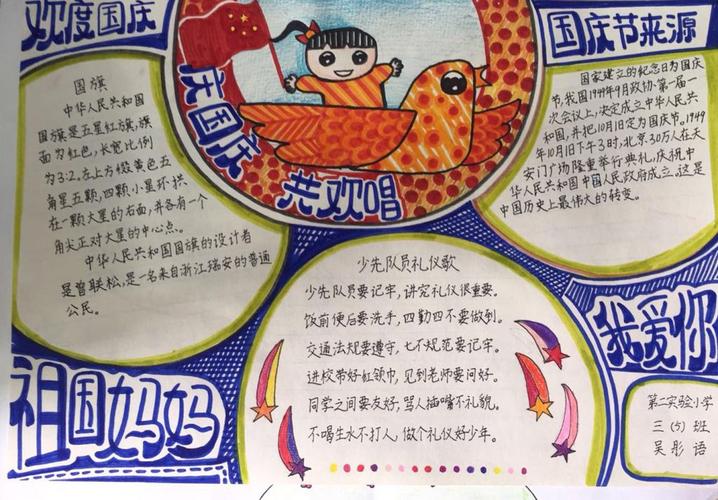 欢度国庆
国旗
中华人民共和国
国旗是五星红旗,旗
面为红色,长宽比例
为3:2。左上方缀黄色五
角星五颗,四颗小星环拱
在一颗大星的右面,并各有一个
角尖正对大星的中心点。
中华人民共和国国旗的设计者
是曾联松,是一名来自浙江瑞安的普通
公民。
庆国庆
共欢唱
国庆节来源
国家建立的纪念日为国庆
节,我国1949年9月政协·第一届一
次会议上,决定成立中华人民共
和国,并把10月1日定为国庆节。1949
年10月1日下午3时,北京30万人在天
安门广场隆重举行典礼,庆祝中
华人民共和国中国人民政府成立。这是
中国历史上最伟大的转变。
少先队员礼仪歌
少先队员要记牢,讲究礼仪很重要。
饭前便后要洗手,四勤四不要做到。
交通法规要遵守,七不规范要记牢。
进校带好红领巾,见到老师要问好。
同学之间要友好,骂人插嘴不礼貌。
不喝生水不打人,做个礼仪好少年。
祖国妈妈
我爱你
第二实验小学
三(5)班
吴彤语